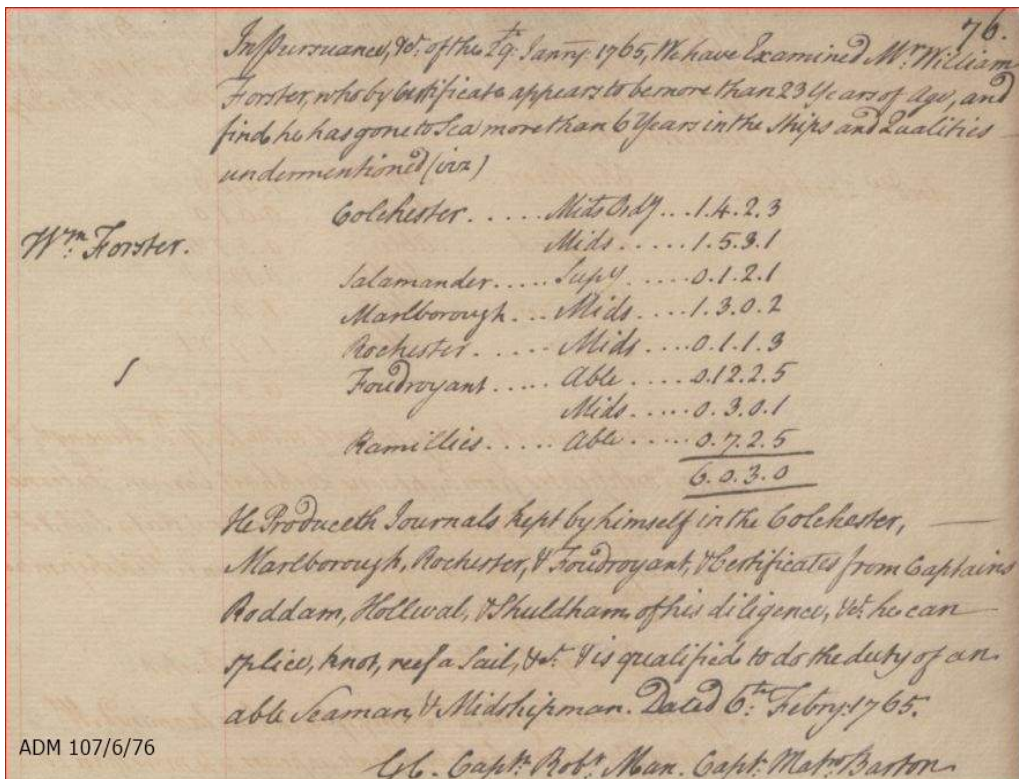 76.
In Pursuance, &c. of the 29th. Janry. 1765, We have Examined Mr. William
Forster, who by Certificate appears to be more than 23 Years of Age, and
find he has gone to Sea more than 6 Years in the Ships and Qualities
undermentioned (viz)
Colchester..... Mids Ordy ...1.4.2.3
Wm. Forster.
Mids.....1.5.3.1
Salamander..... Supy.....0.1.2.1
Marlborough... Mids....1.3.0.2
Rochester..... Mids....0.1.1.3
Foudroyant..... Able....0.12.2.5
Mids.....0.3.0.1
Ramillies..... Able.....0.7.2.5
6.0.3.0
He Produceth Journals kept by himself in the Colchester,
Marlborough, Rochester, & Foudroyant, & Certificates from Captains
Roddam, Hollwal, & Shuldham, of his diligence, &c. he can
splice, knot, reef a Sail, &c. & is qualified to do the duty of an
able Seaman, & Midshipman. Dated 6th. Febry: 1765.
Captn. Robt. Man. Captn. Barton
ADM 107/6/76